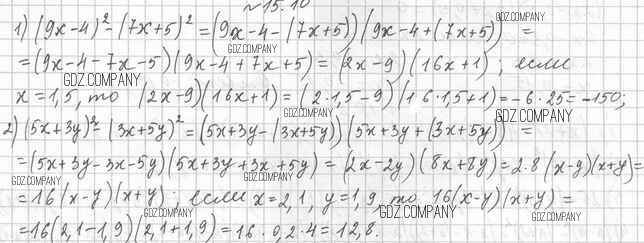 № 15.10
1) (9x-4)² - (7x+5)² = (9x-4-(7x+5))(9x-4+(7x+5)) =
= (9x-4-7x-5)(9x-4+7x+5) = (2x-9)(16x+1); если
x=1,5, то (2x-9)(16x+1) = (2·1,5-9)(16·1,5+1) = -6·25 = -150;
2) (5x+3y)² - (3x+5y)² = (5x+3y-(3x+5y))(5x+3y+(3x+5y)) =
= (5x+3y-3x-5y)(5x+3y+3x+5y) = (2x-2y)(8x+8y) = 2·8(x-y)(x+y) =
= 16(x-y)(x+y); если x=2,1, y=1,9, то 16(x-y)(x+y) =
= 16(2,1-1,9)(2,1+1,9) = 16·0,2·4 = 12,8.
GDZ.COMPANY
GDZ.COMPANY
GDZ.COMPANY
GDZ.COMPANY
GDZ.COMPANY
GDZ.COMPANY
GDZ.COMPANY
GDZ.COMPANY
GDZ.COMPANY
GDZ.COMPANY